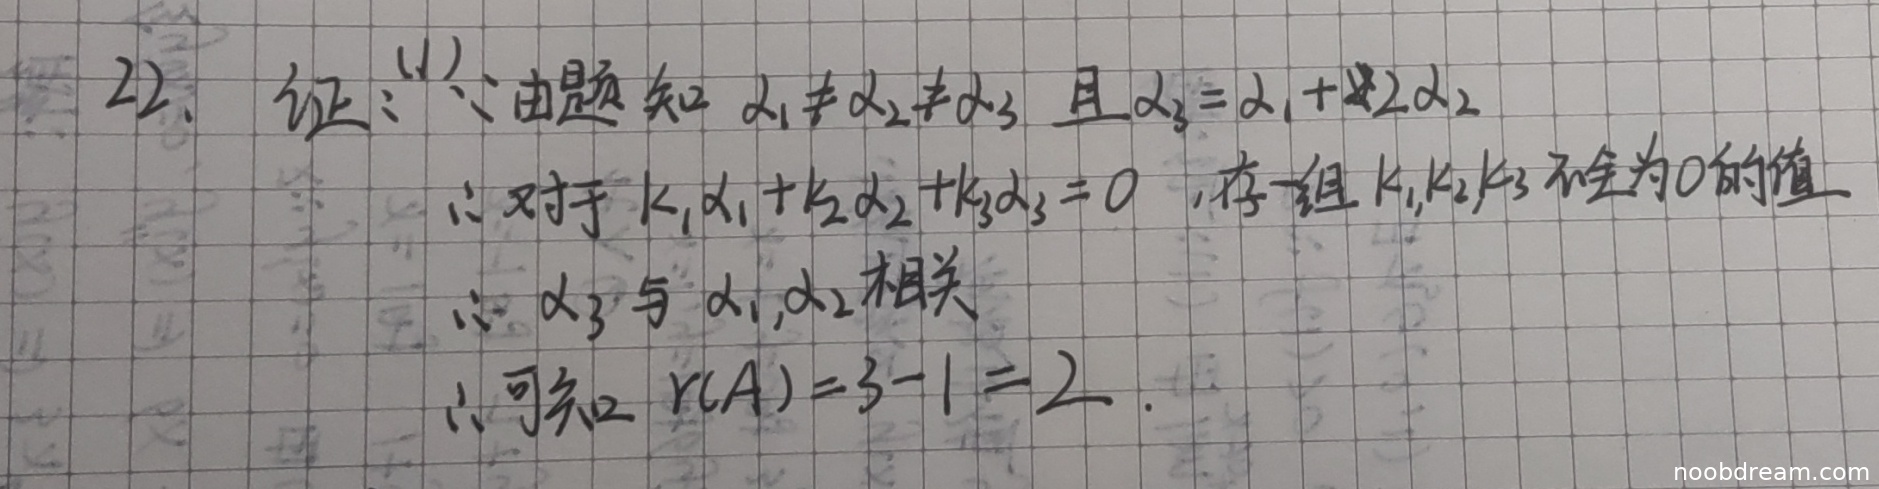 22. 证:(1)∵由题知 α₁≠α₂≠α₃ 且α₃=α₁+2α₂
∴对于 k₁α₁+k₂α₂+k₃α₃=0 ,存一组 k₁,k₂,k₃ 不全为0的值
∴ α₃与 α₁,α₂相关
∴可知 r(A)=3-1=2.
noobdream.com